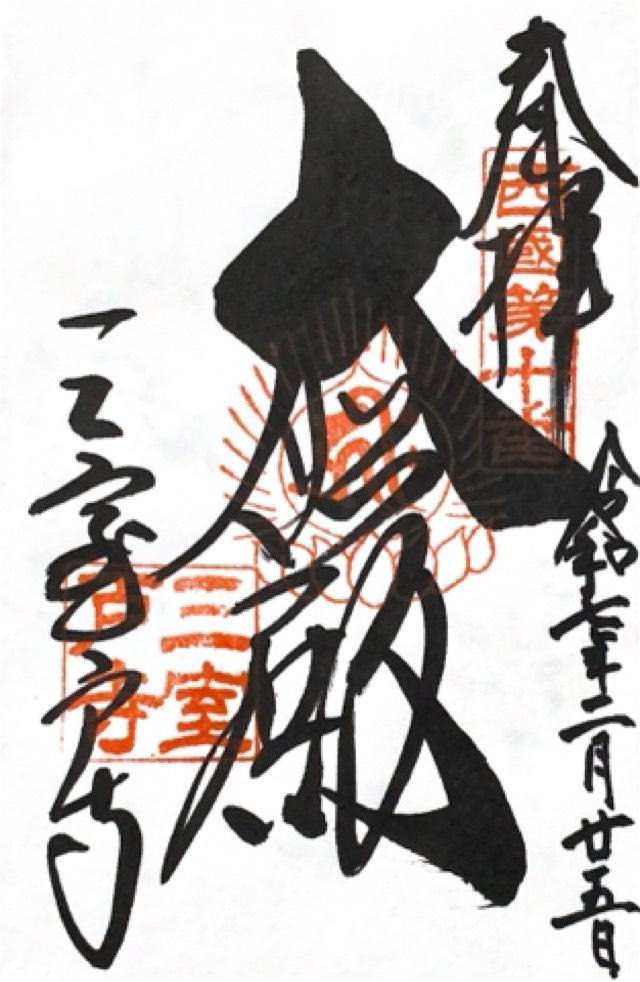 奉拝
西國第十番
令和七年二月廿五日
大悲殿
三室戸寺
三室
戸寺